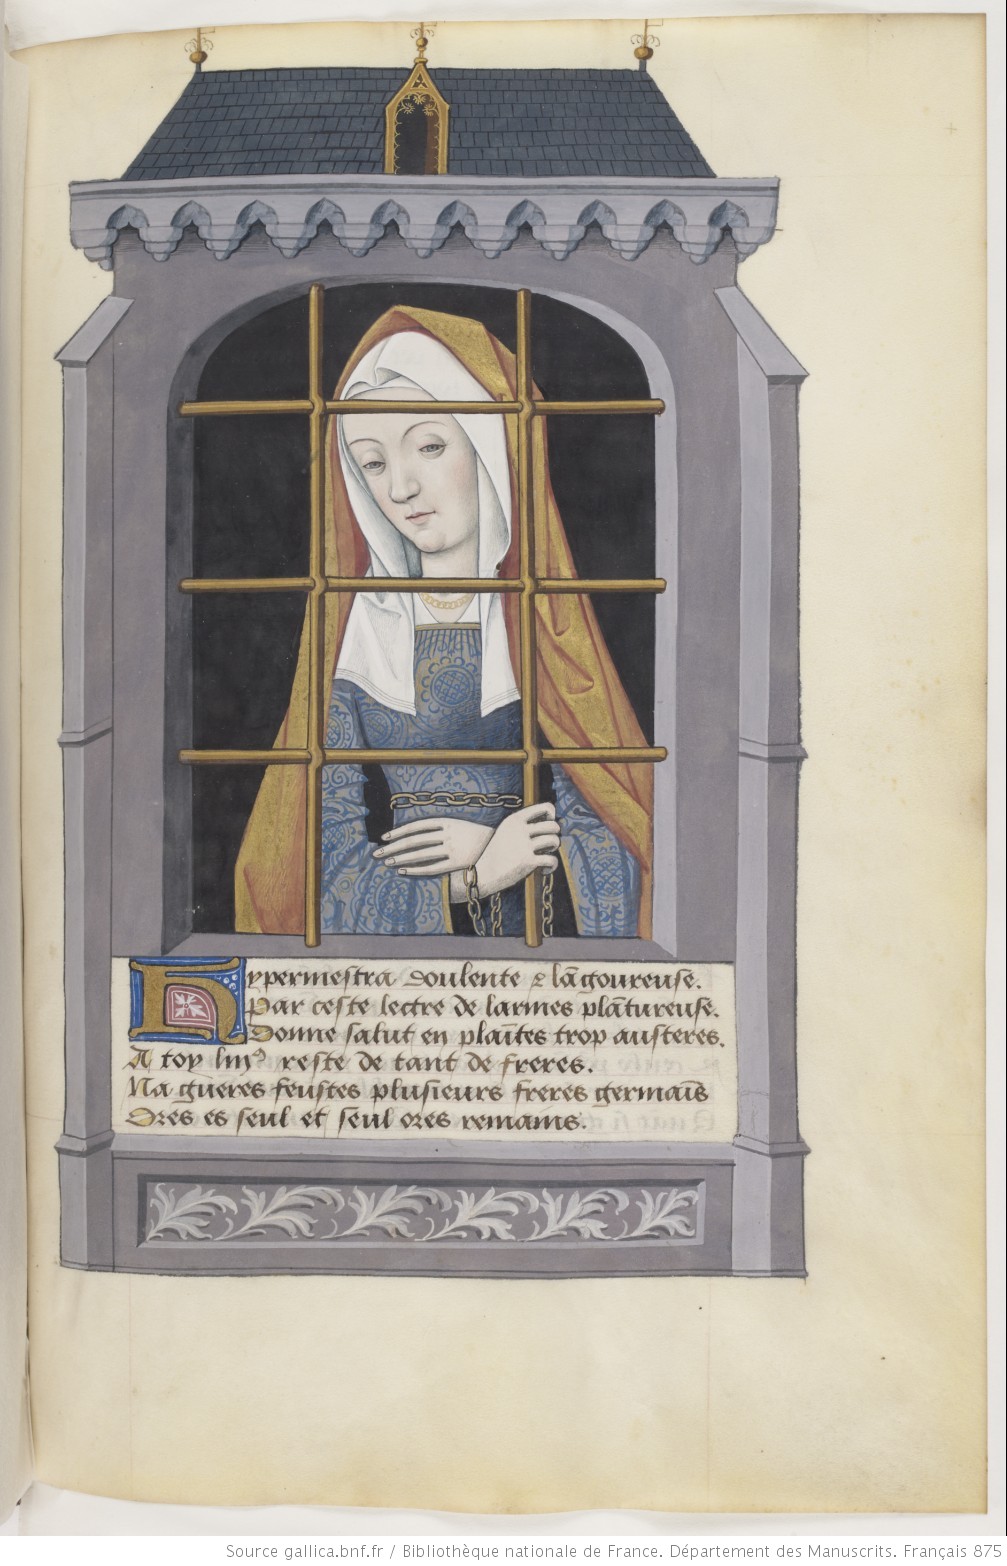 Hypermestra doulente & lāgoureuse.
Par ceste lectre de larmes plātureuse.
Donne salut en plaītes trop austeres.
A toy linꝰ reste de tant de freres.
Na gueres feustes plusieurs freres germaīs
Ores es seul et seul ores remains.
Source gallica.bnf.fr / Bibliothèque nationale de France. Département des Manuscrits. Français 875